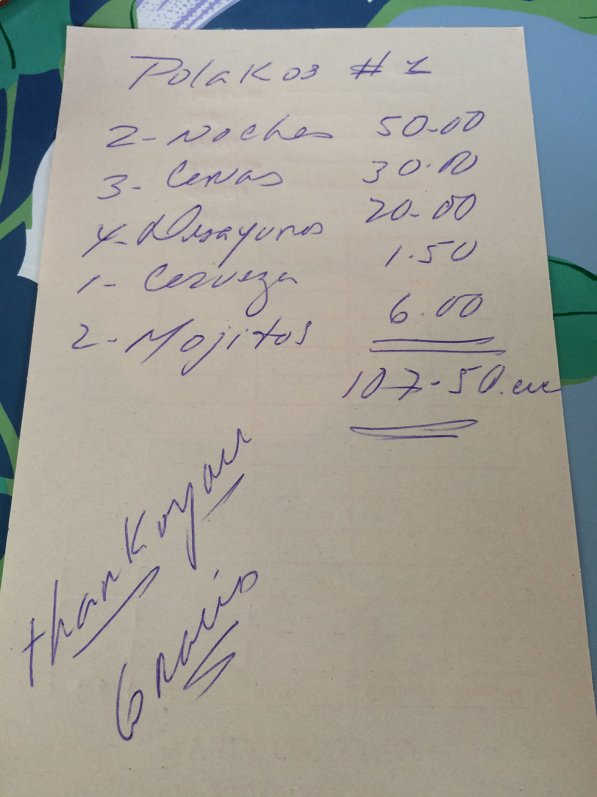 Polakos #1
2- Noches 50-00
3- Cenas 30.00
4- Desayunos 20-00
1- Cerveza 1.50
2- Mojitos 6.00
107-50.cuc
thank you
Gracias